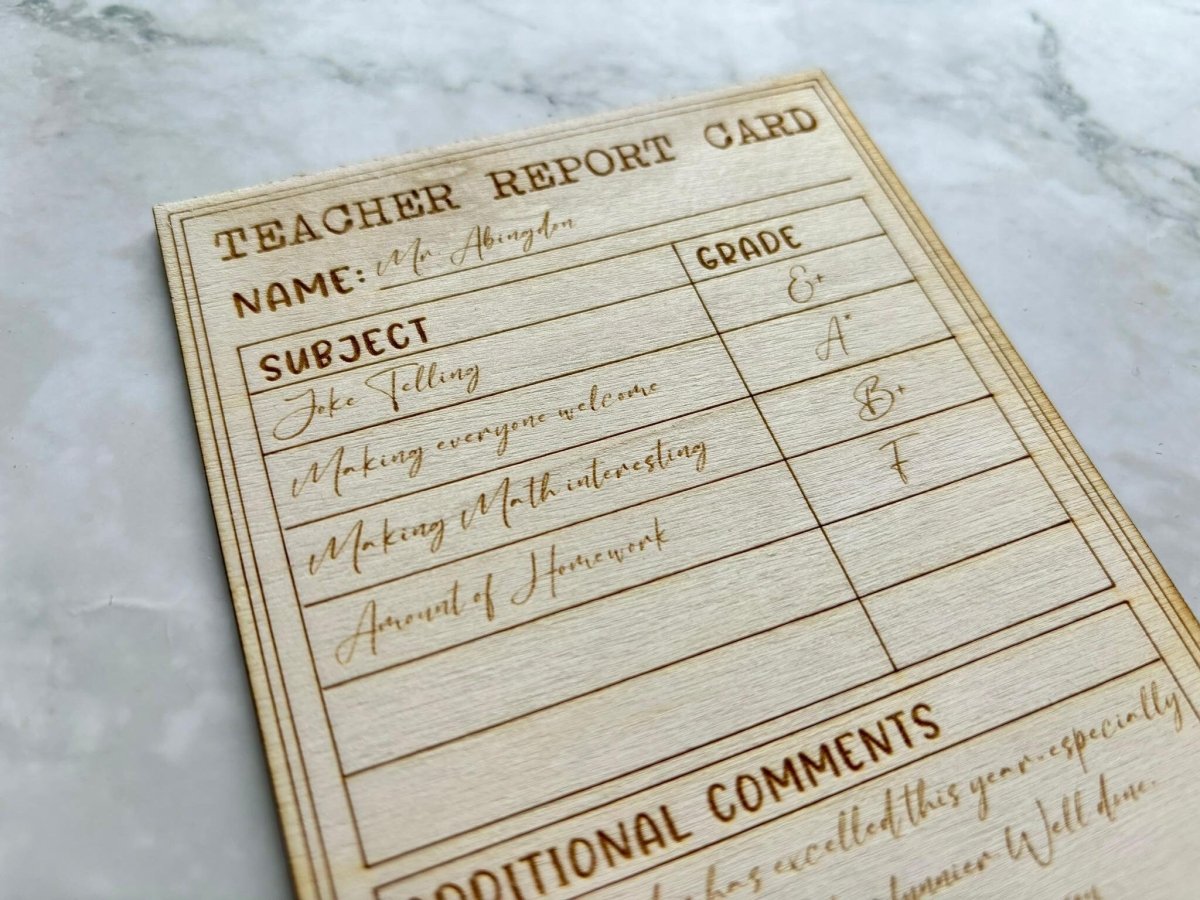 TEACHER REPORT CARD
NAME: Mr. Abingdon
SUBJECT GRADE
Joke Telling E+
Making everyone welcome A*
Making Math interesting B+
Amount of Homework F
ADDITIONAL COMMENTS
has excelled this year-especially
Well done.